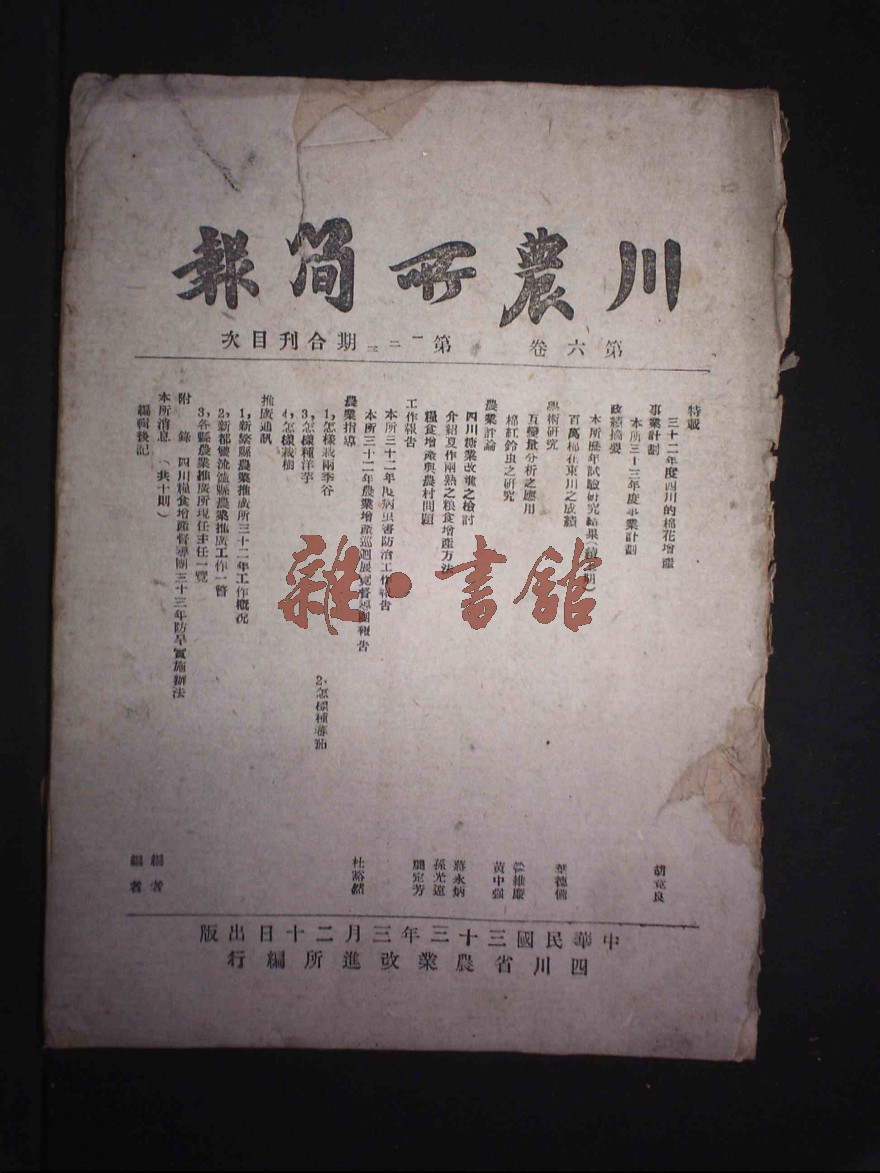 川農所簡報
第六卷 第一二三期合刊目次
特載
三十二年度四川的棉花增產 胡竟良
事業計劃
本所三十三年度事業計劃
政績摘要
本所歷年試驗研究結果
百萬棉在東川之成績
學術研究
互變量分析之應用
棉紅鈴虫之研究 黃中強
農業討論
四川糖業改進之檢討 蔣永炳
介紹夏作兩熟之粮食增產方法 孫光遠
糧食增產與農村問題 定芳
工作報告
本所三十二年度病虫害防治工作報告
本所三十二年農業增產巡迴展覽督導團報告 杜裕然
農業指導
1,怎樣栽兩季谷 2,怎樣種蕃茄
3,怎樣種洋芋
4,怎樣栽樹
推廣通訊
1,新繁縣農業推廣所三十二年工作概况
2,新都雙流溫縣農業推廣工作一瞥
3,各縣農業推廣所現任主任一覽
附錄 四川糧食增產督導團三十三年防旱實施辦法
本所消息(共十期) 編者
編輯後記 編者
中華民國三十三年三月二十日出版
四川省農業改進所編行
雜·書館